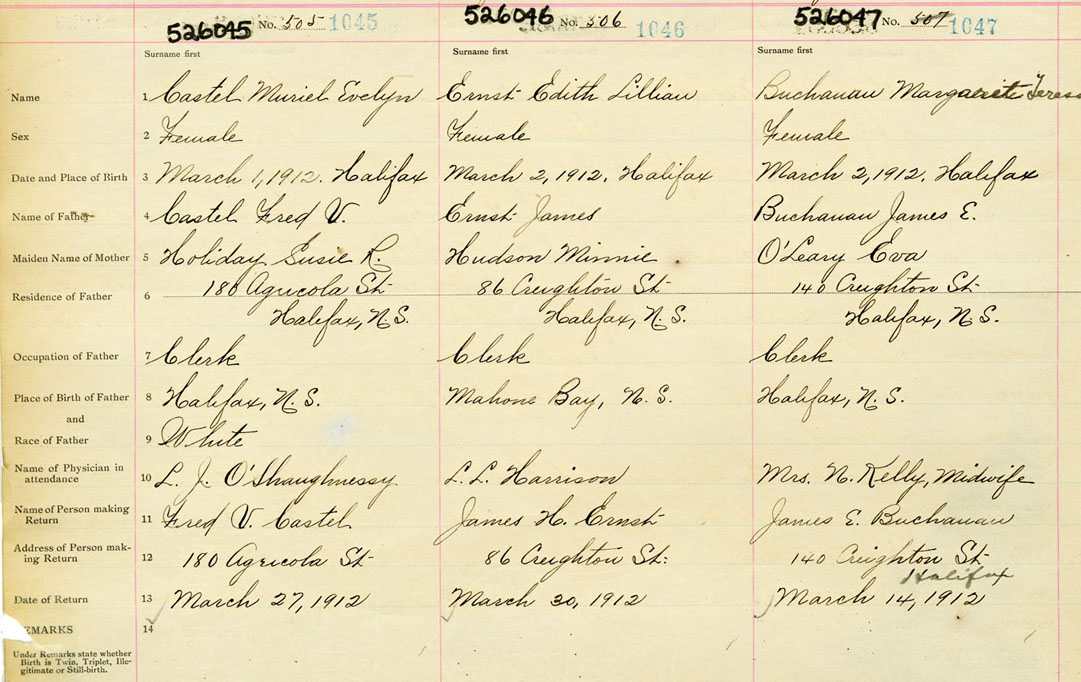 526045 No. 505 1045
526046 No. 506 1046
526047 No. 507 1047
Surname first
Surname first
Surname first
Name 1 Castel Muriel Evelyn
Ernst Edith Lillian
Buchanan Margarite Teresa
Sex 2 Female
Female
Female
Date and Place of Birth 3 March 1, 1912. Halifax
March 2, 1912. Halifax
March 2, 1912. Halifax
Name of Father 4 Castel Fred V.
Ernst James
Buchanan James E.
Maiden Name of Mother 5 Holiday Susie R.
Hudson Minnie
O'Leary Eva
Residence of Father 6 180 Agricola St
Halifax, N.S.
86 Creighton St
Halifax, N.S.
140 Creighton St
Halifax, N.S.
Occupation of Father 7 Clerk
Clerk
Clerk
Place of Birth of Father 8 Halifax, N.S.
Mahone Bay, N.S.
Halifax, N.S.
and
Race of Father 9 White
Name of Physician in
attendance 10 L. J. O'Shaughnessy
L. L. Harrison
Mrs. N. Kelly, Midwife
Name of Person making
Return 11 Fred V. Castel
James H. Ernst
James E. Buchanan
Address of Person mak-
ing Return 12 180 Agricola St
86 Creighton St.
140 Creighton St
Halifax
Date of Return 13 March 27, 1912
March 30, 1912
March 14, 1912
EMARKS 14
Under Remarks state whether
Birth is Twin, Triplet, Ille-
gitimate or Still-birth.